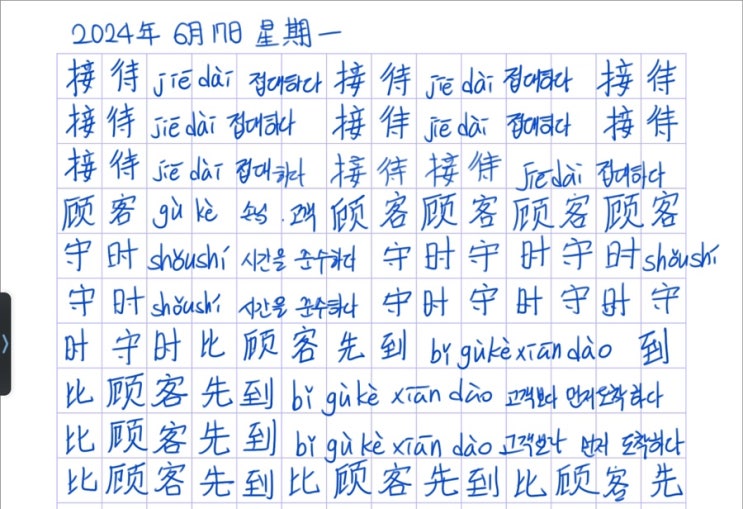 2024年 6月 17日 星期一
接待 jiē dài 접대하다 接待 jiē dài 접대하다 接待
接待 jiē dài 접대하다 接待 jiē dài 접대하다 接待
接待 jiē dài 접대하다 接待 接待 jiē dài 접대하다
顾客 gù kè 손님. 고객 顾客 顾客 顾客 顾客
守时 shǒushí 시간을 준수하다 守时 守时 守时 shǒushí
守时 shǒushí 시간을 준수하다 守时 守时 守时 守
时 守时 比 顾客 先到 bǐ gùkè xiān dào 到
比 顾客 先到 bǐ gù kè xiān dào 고객보다 먼저 도착하다
比 顾客 先到 bǐ gù kè xiān dào 고객보다 먼저 도착하다
比顾客先到比顾客先到比顾客先